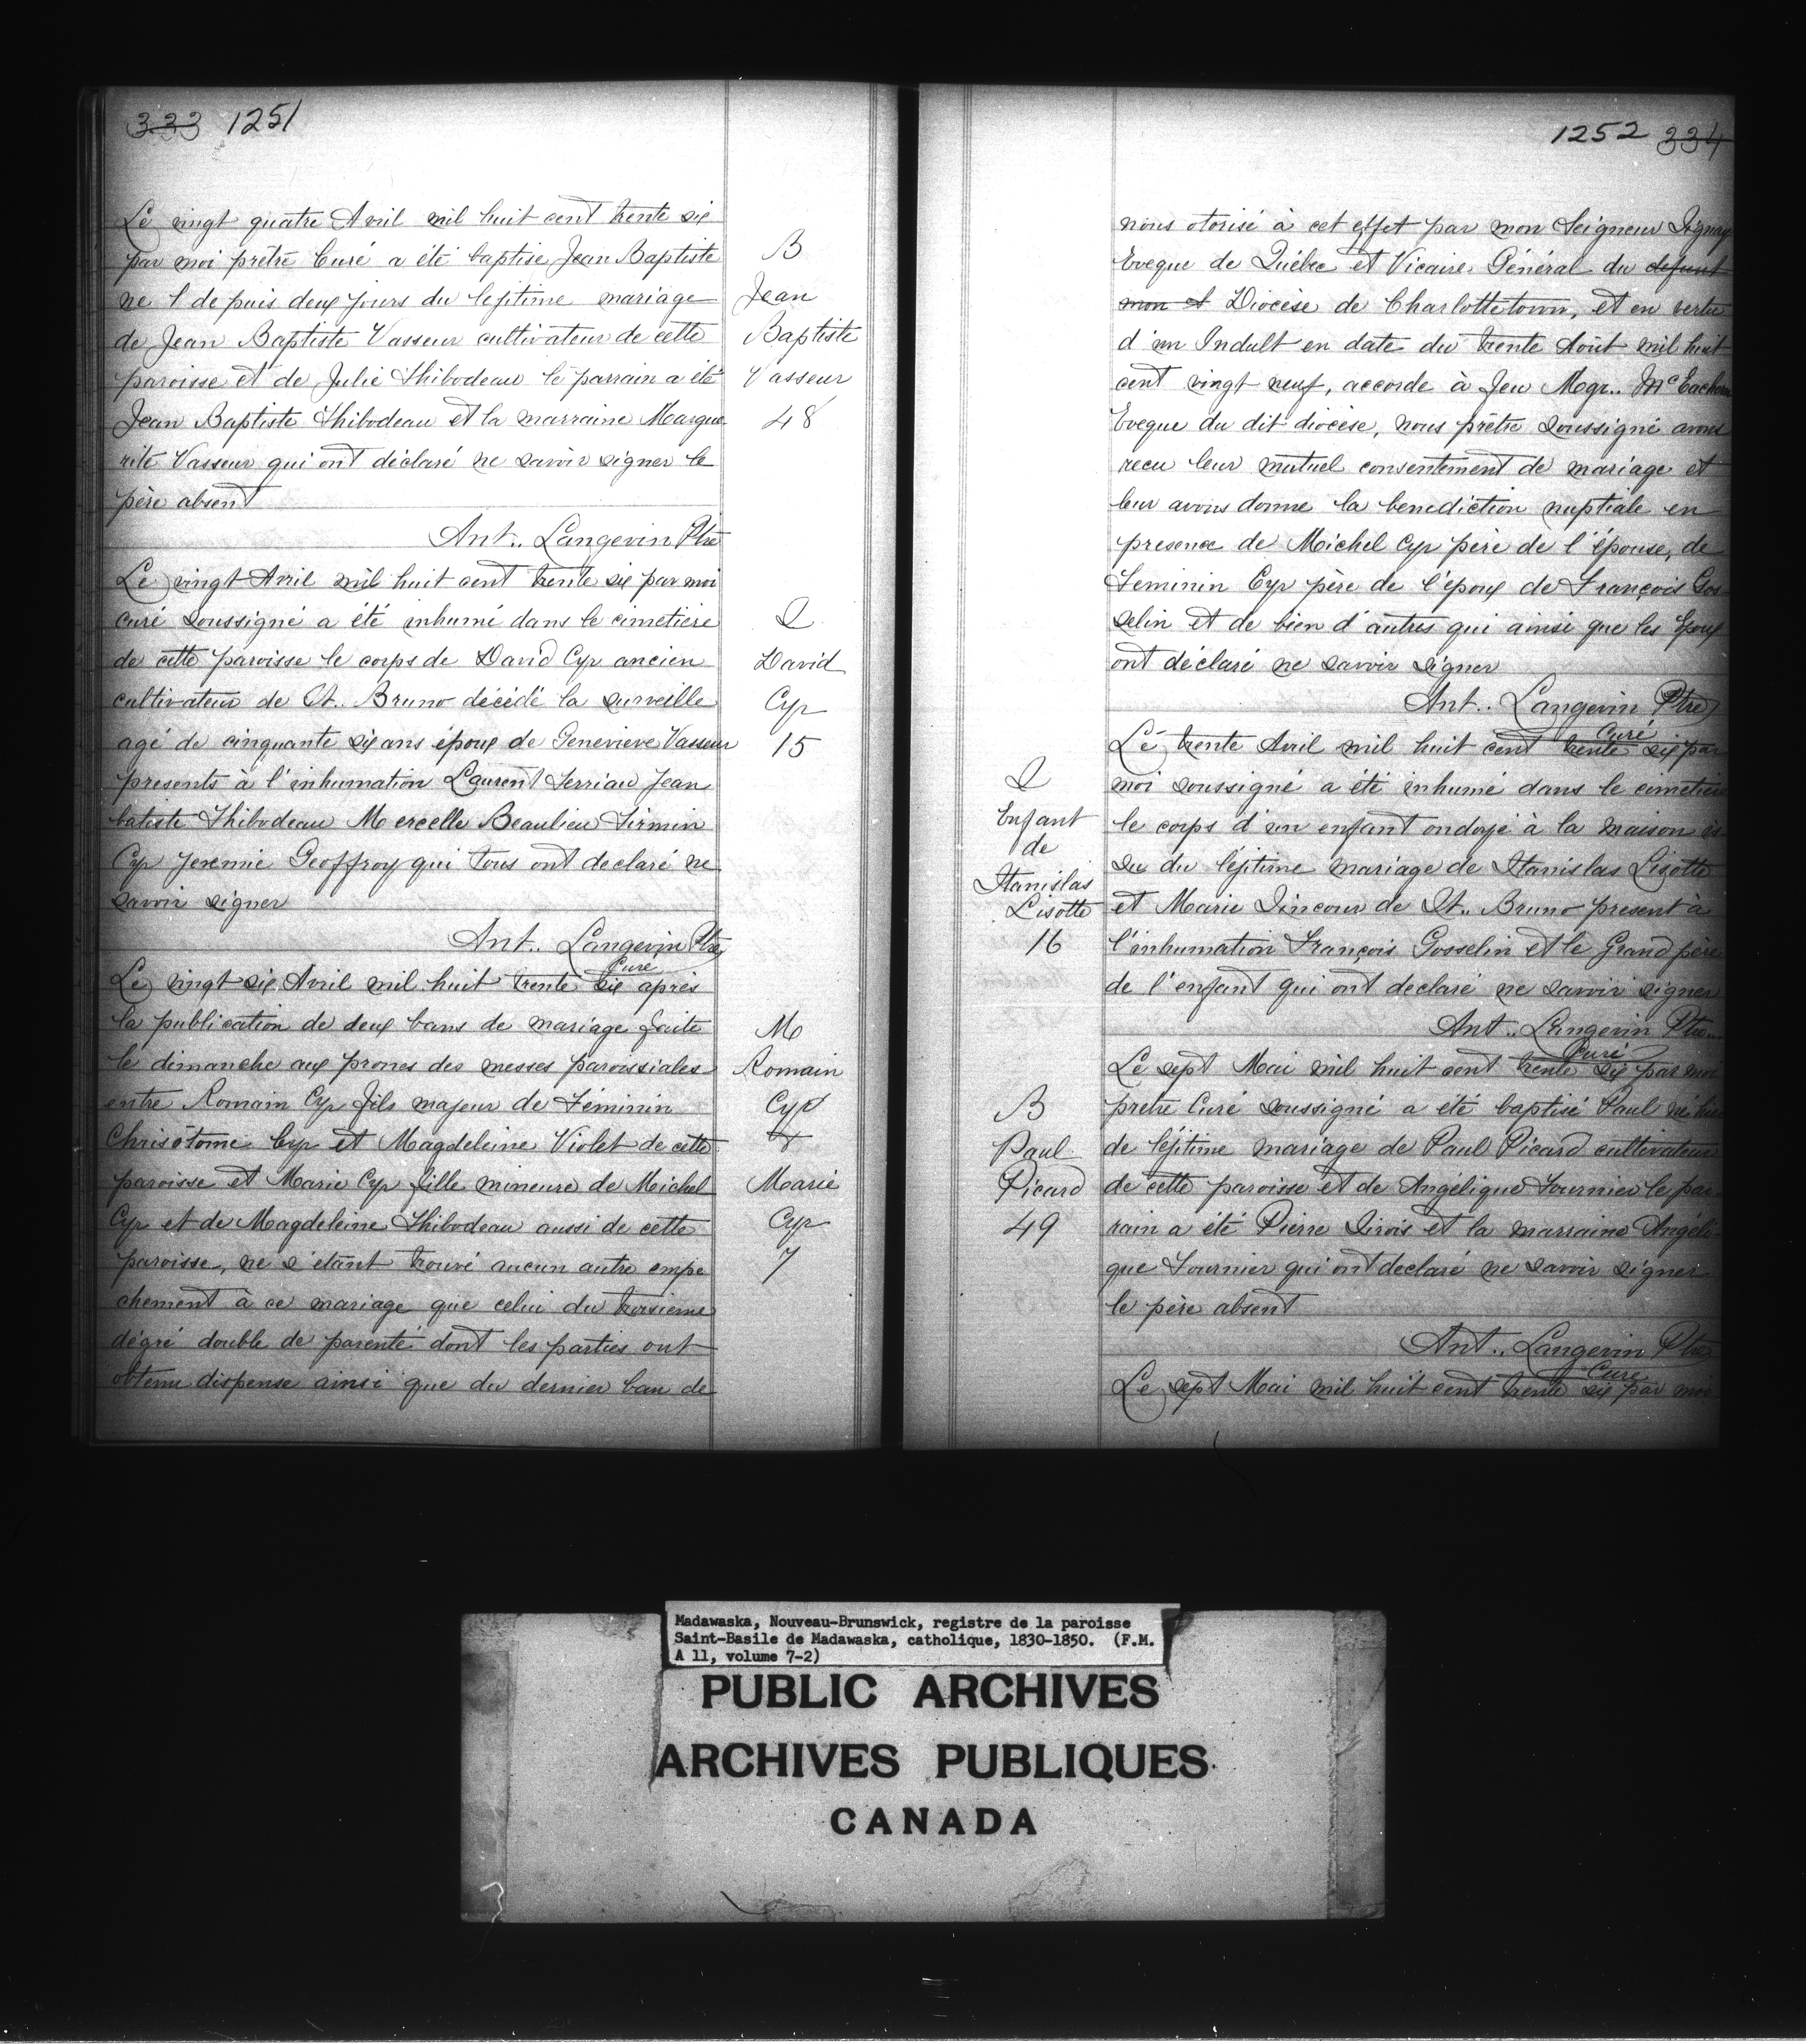 333 1251
Le vingt quatre Avril mil huit cent trente six
par moi prêtre Curé a été baptisé Jean Baptiste
ne l de puis deux jours du lejitime mariage
de Jean Baptiste Vasseur cultivateur de cette
paroisse et de Julie Thibodeau le parrain a été
Jean Baptiste Thibodeau et la marraine Margue
rite Vasseur qui ont déclaré ne savoir signer le
père absent
Ant.. Langevin Ptre
B
Jean
Baptiste
Vasseur
48
Le vingt Avril mil huit cent trente six par moi
curé soussigné a été inhumé dans le cimetiere
de cette paroisse le corps de David Cyr ancien
cultivateur de St.. Bruno décédé la surveille
agé de cinquante six ans époux de Genevieve Vasseur
presents à l'inhumation Laurent Terriau Jean
batiste Thibodeau Mercelle Beaulieu Firmin
Cyr Jeremie Geoffroy qui tous ont declaré ne
savoir signer
Ant.. Langevin Ptre
Curé
S
David
Cyr
15
Le vingt six Avril mil huit trente six après
la publication de deux bans de mariage faite
le dimanche aux prones des messes paroissiales
entre Romain Cyr fils majeur de Féminin
Chrisôtome Cyr et Magdeleine Violet de cette
paroisse et Marie Cyr fille mineure de Michel
Cyr et de Magdeleine Thibodeau aussi de cette
paroisse, ne s'étant trouvé aucun autre empe
chement à ce mariage que celui du troisieme
dégré double de parenté dont les parties ont
obtenu dispense ainsi que du dernier ban de
M
Romain
Cyr
&
Marie
Cyr
7
1252 334
nous otorisé à cet effet par mon Seigneur Signay
Eveque de Québec et Vicaire Général du defunt
mon st Diocèse de Charlottetown, et en vertu
d'un Indult en date du trente Août mil huit
cent vingt neuf, accorde à feu Mgr.. McEachern
Eveque du dit diocèse, nous prêtre soussigné avons
recu leur mutuel consentement de mariage et
leur avons donne la benediction nuptiale en
presence de Michel Cyr père de l'épouse, de
Feminin Cyr père de l'époux de François Gos
selin et de bien d'autres qui ainsi que les Epoux
ont déclaré ne savoir signer
Ant.. Langevin Ptre
Curé
Le trente Avril mil huit cent trente six par
moi soussigné a été inhumé dans le cimetiere
le corps d'un enfant ondoyé à la maison is
su du léjitime mariage de Stanislas Lisotte
et Marie Sincour de St.. Bruno present à
l'inhumation François Gosselin et le Grand père
de l'enfant qui ont declaré ne savoir signer
Ant.. Langevin Ptre..
Curé
S
Enfant
de
Stanislas
Lisotte
16
Le sept Mai mil huit cent trente six par moi
pretre Curé soussigné a été baptisé Paul né hier
de léjitime mariage de Paul Picard cultivateur
de cette paroisse et de Angélique Fournier le par
rain a été Pierre Sirois et la marraine Angéli
que Fournier qui ont declaré ne savoir signer
le père absent
Ant.. Langevin Ptre
Curé
B
Paul
Picard
49
Le sept Mai mil huit cent trente six par moi
Madawaska, Nouveau-Brunswick, registre de la paroisse
Saint-Basile de Madawaska, catholique, 1830-1850. (F.M.
A 11, volume 7-2)
PUBLIC ARCHIVES
ARCHIVES PUBLIQUES
CANADA